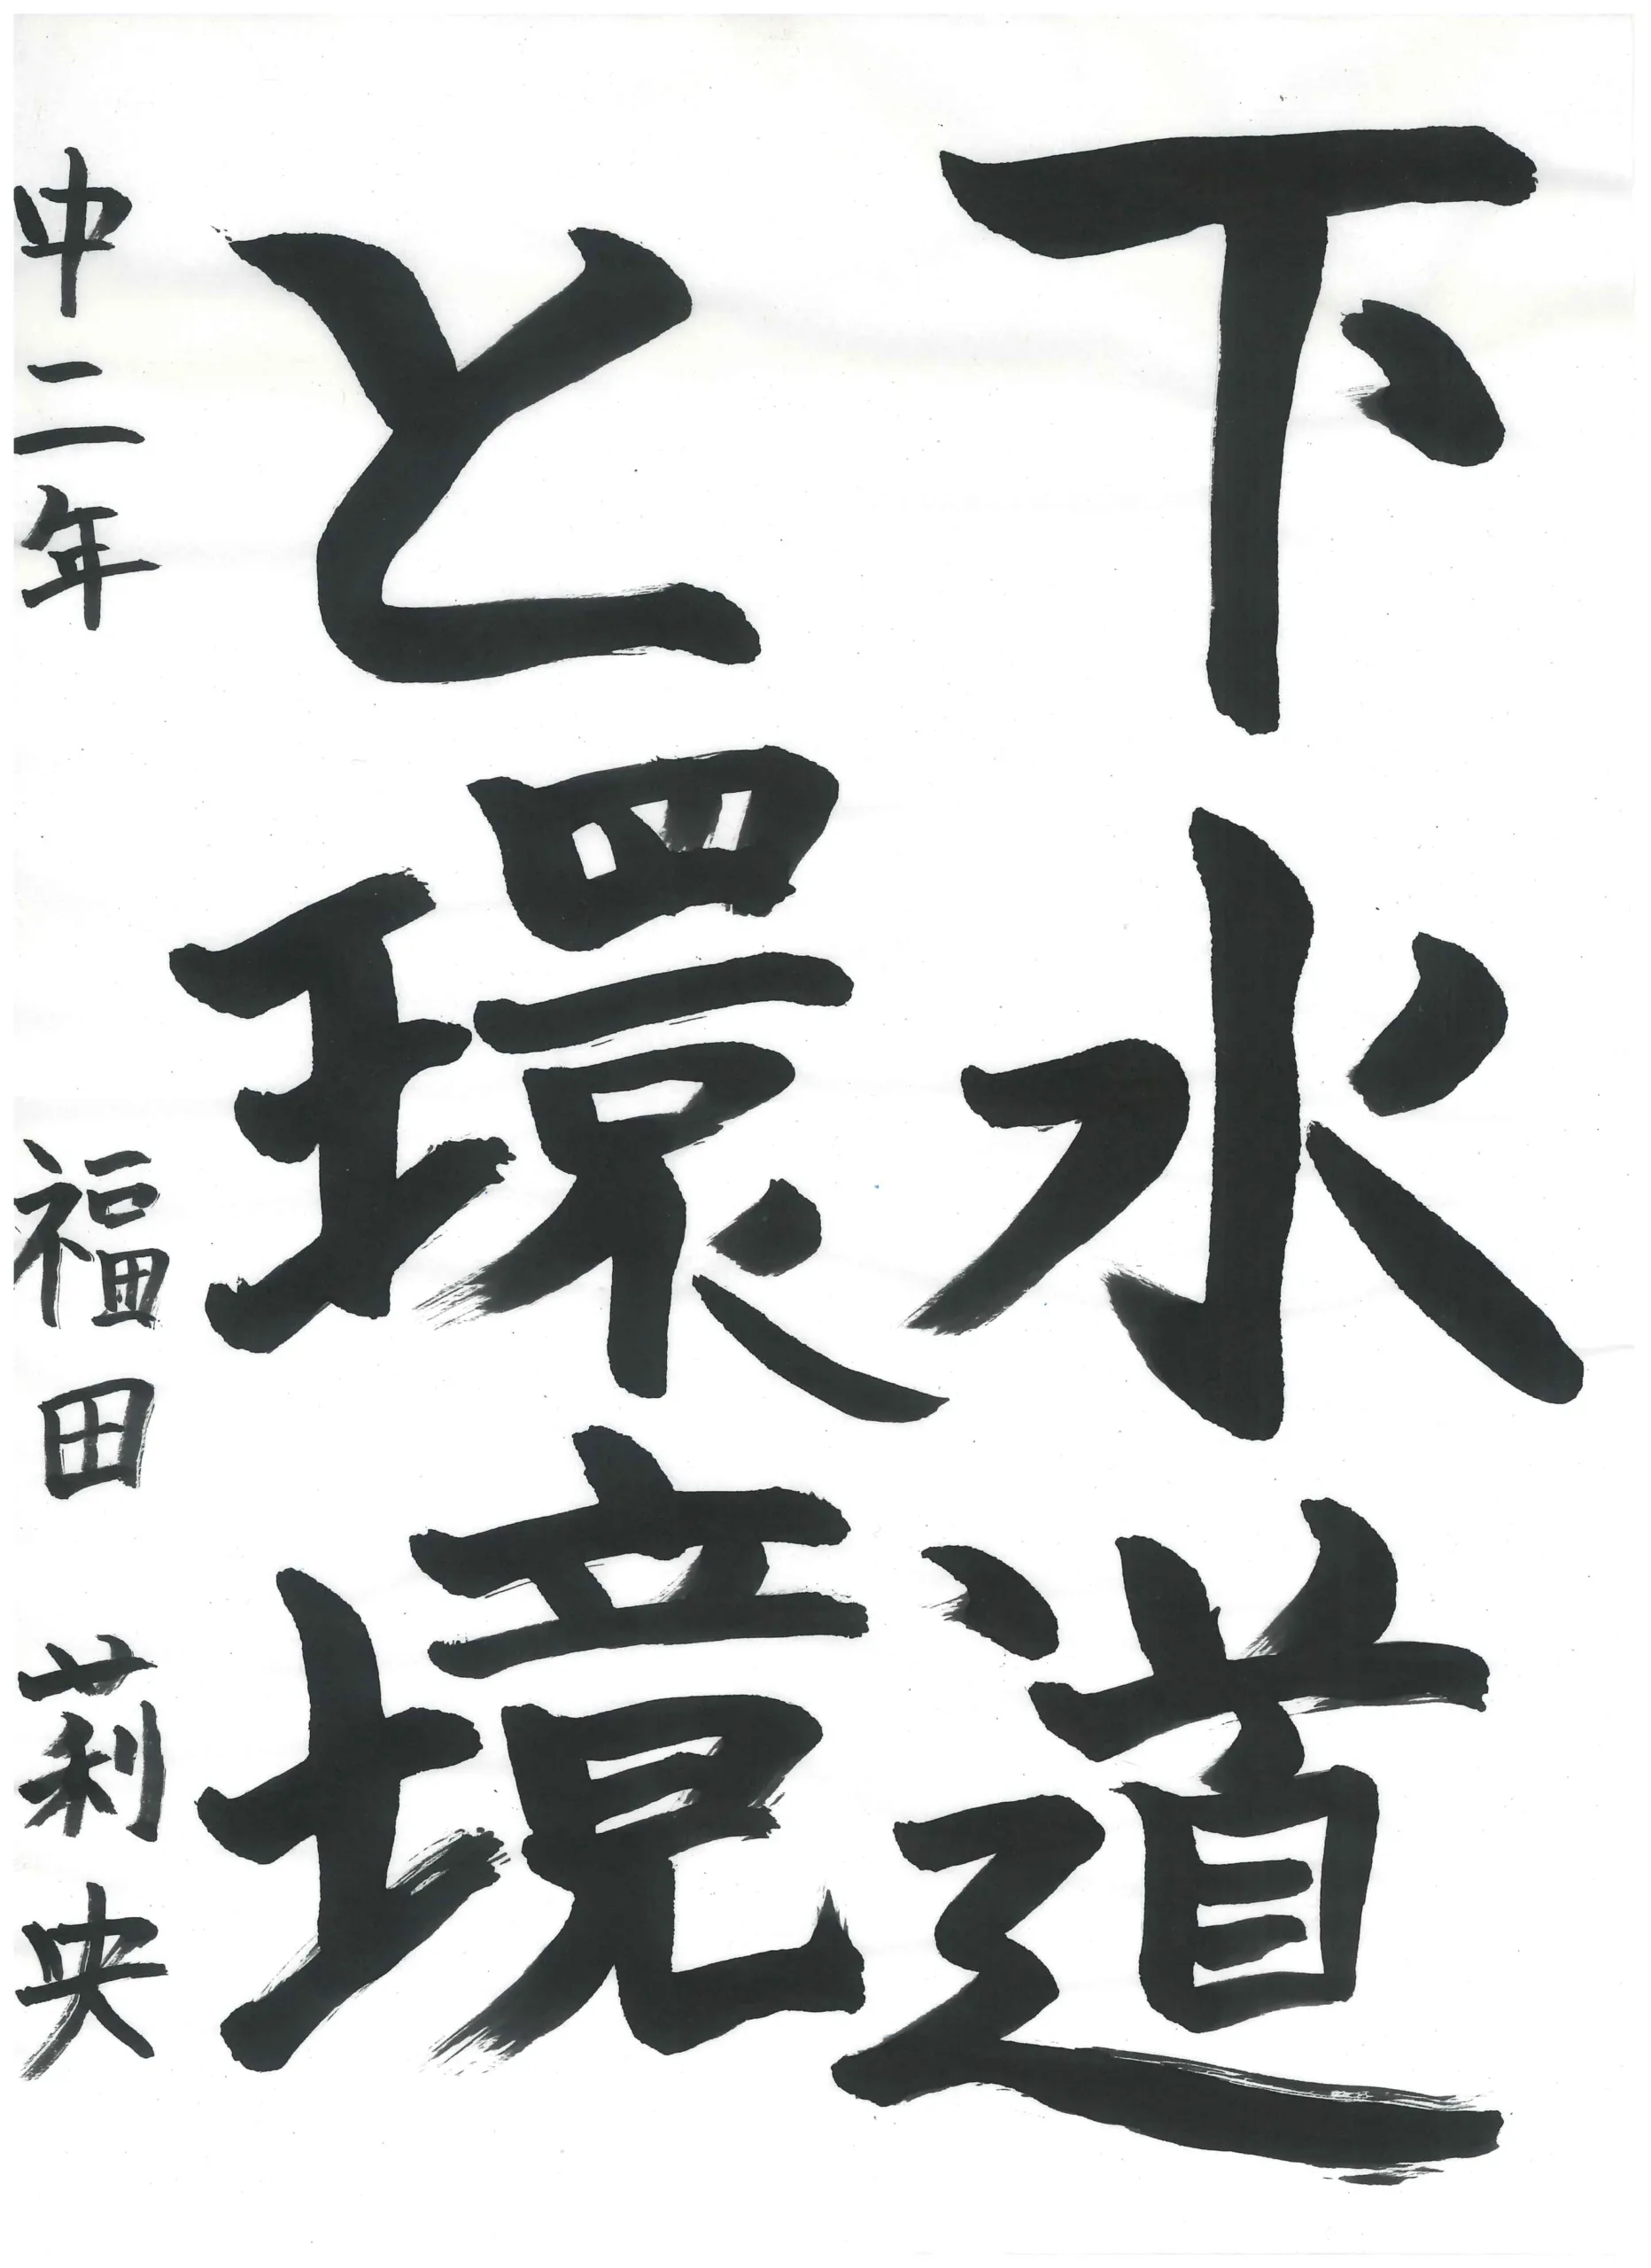 下水道
と環境
中二年 福田莉央